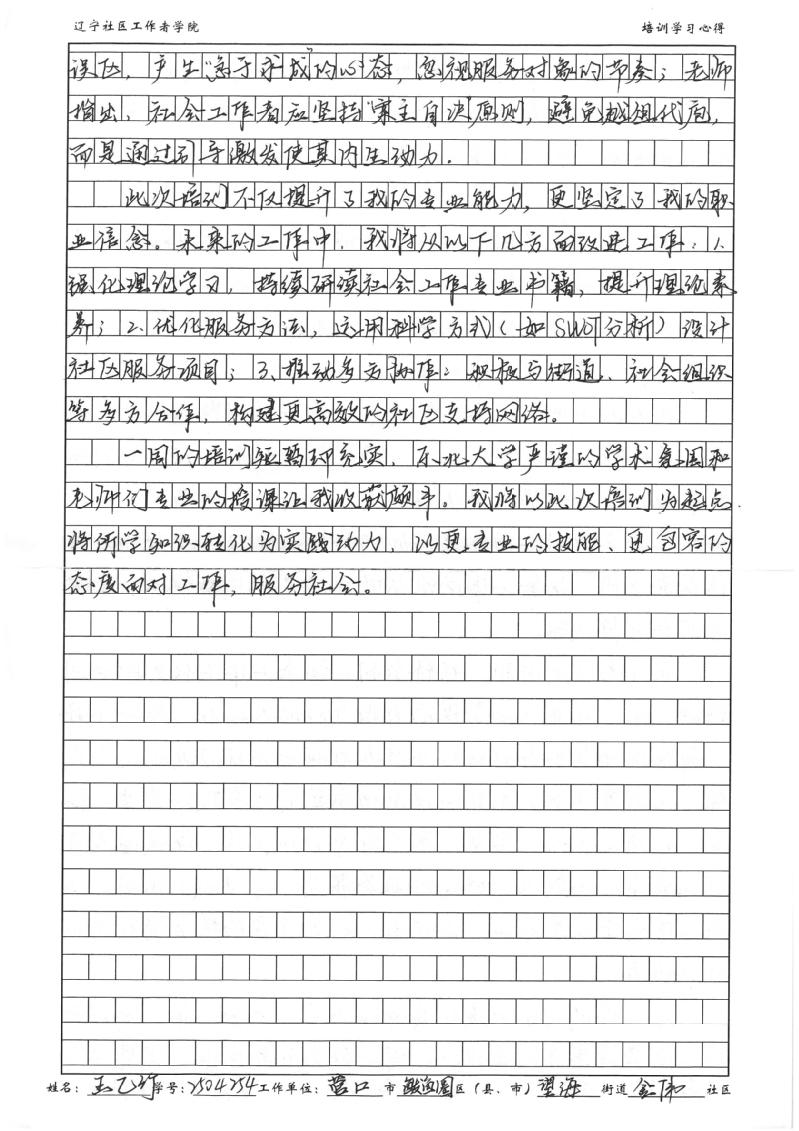 辽宁社区工作者学院 培训学习心得
误区，产生"急于求成"的心态，忽视服务对象的节奏；老师
指出，社会工作者应坚持"案主自决"原则，避免越俎代庖，
而是通过引导激发使其内生动力．
此次培训不仅提升了我的专业能力，更坚定了我的职
业信念。未来的工作中，我将从以下几方面改进工作：1、
强化理论学习，持续研读社会工作专业书籍，提升理论素
养；2、优化服务方法，运用科学方式（如SWOT分析）设计
社区服务项目；3、推动多方协作：积极与街道、社会组织
等多方合作，构建更高效的社区支持网络。
一周的培训短暂却充实，东北大学严谨的学术氛围和
老师们专业的授课让我收获颇丰。我将以此次培训为起点，
将所学知识转化为实践动力，以更专业的技能、更包容的
态度面对工作，服务社会。
姓名：王乙 学号：2504254 工作单位：营口 市 鲅鱼圈 区（县、市）望海 街道 社区